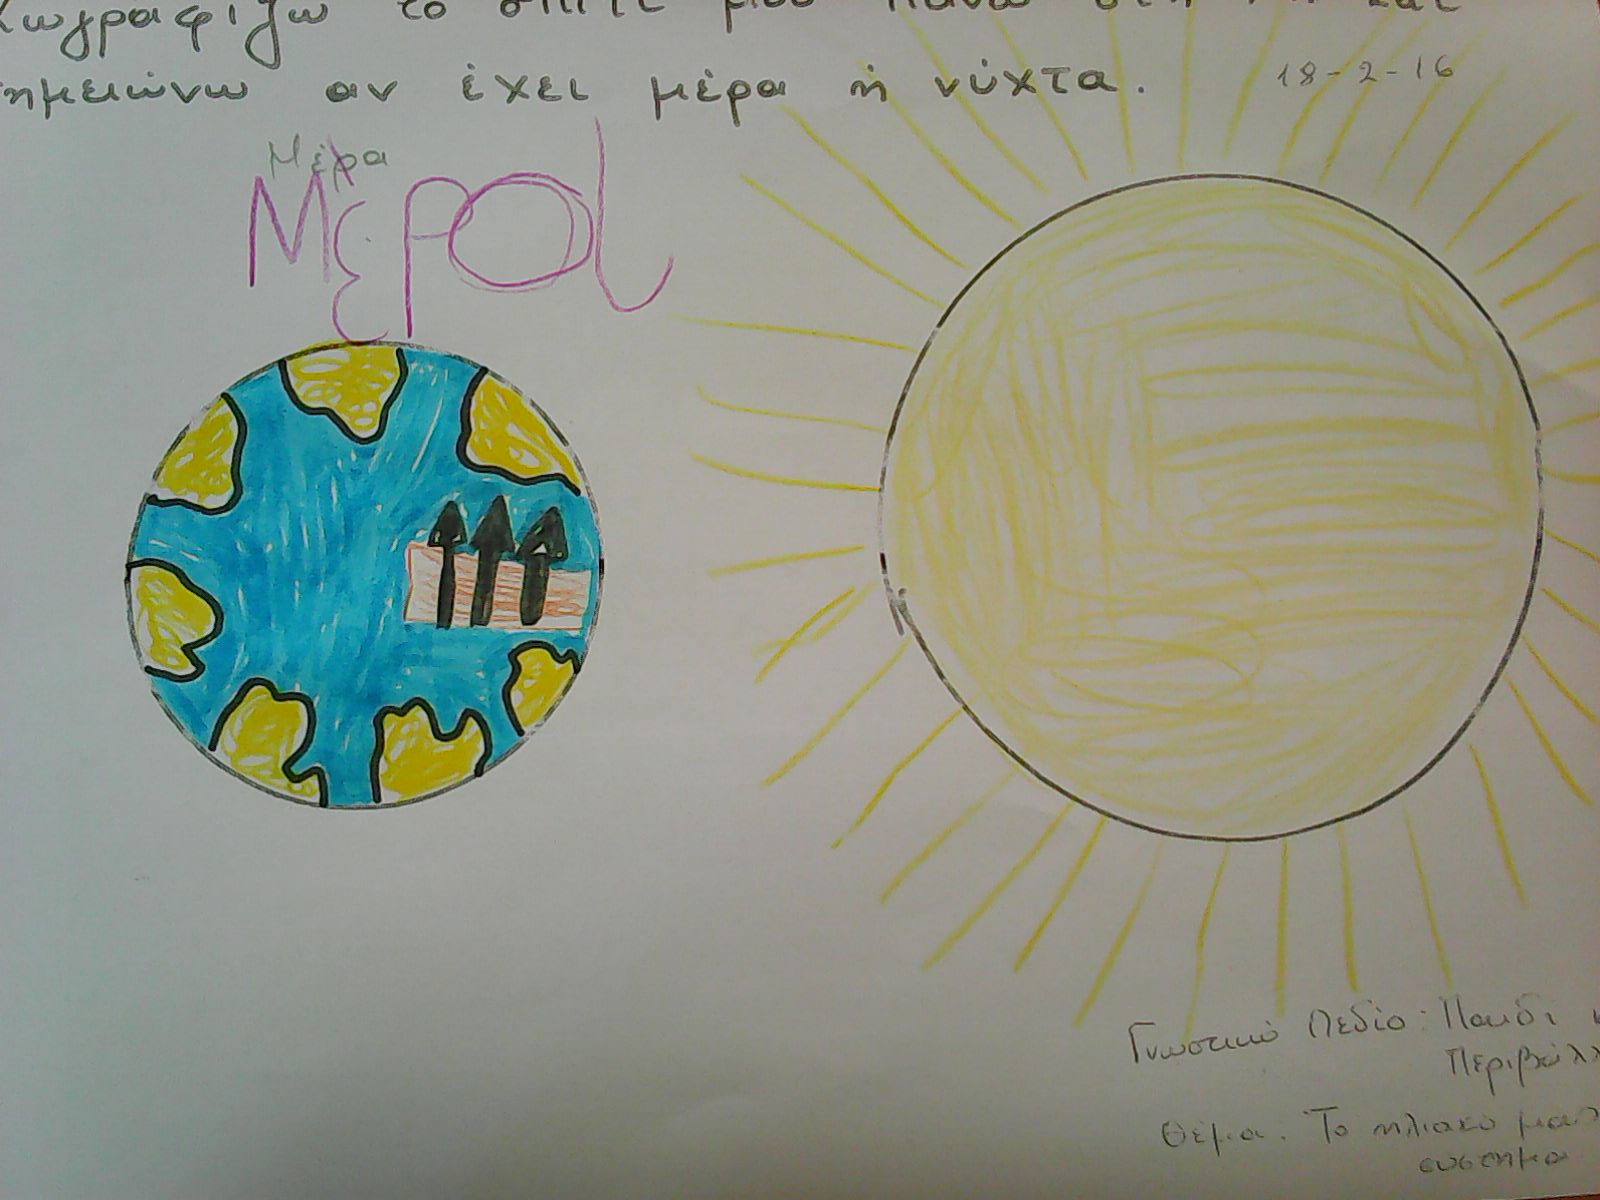 ζωγραφίζω το σπίτι μου πάνω στη Γη και
σημειώνω αν έχει μέρα ή νύχτα. 18-2-16
Μέρα
Μερα
Γνωστικό Πεδίο: Παιδί
Περιβάλλ
Θέμα: Το ηλιακό μας
συστημα